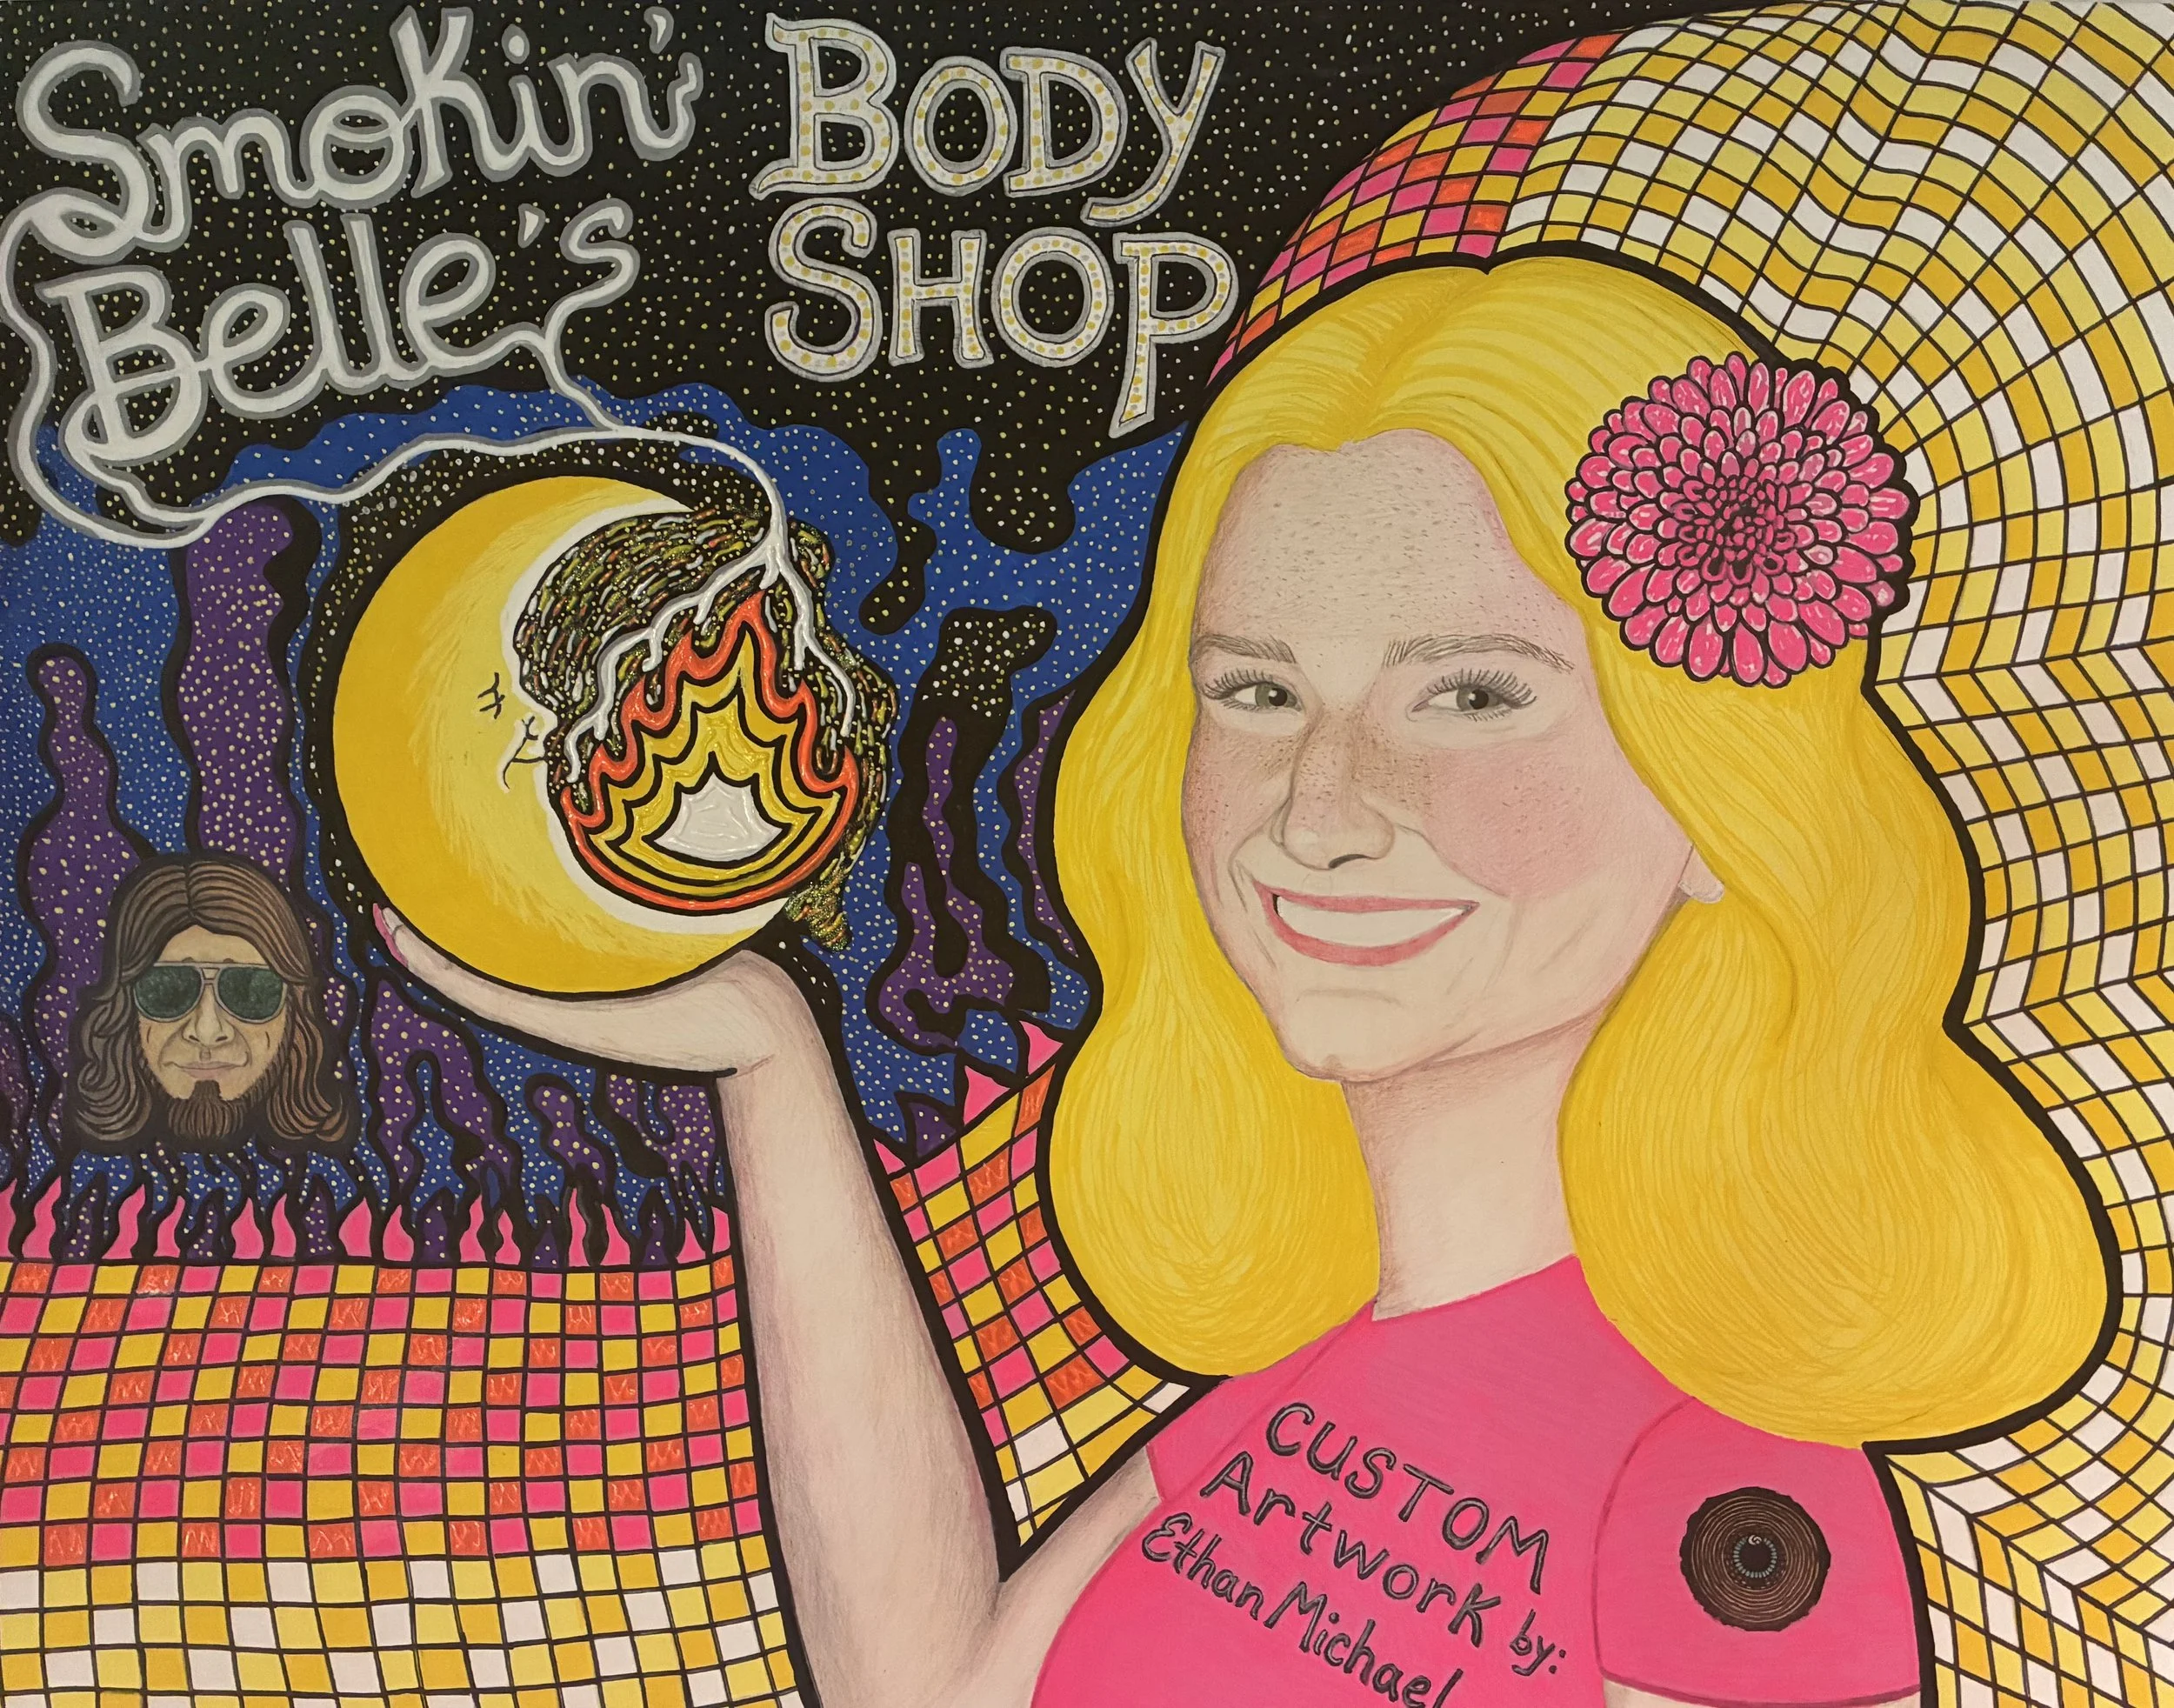 Smokin' BODY
Belle's SHOP
CUSTOM
Artwork by:
Ethan Michael